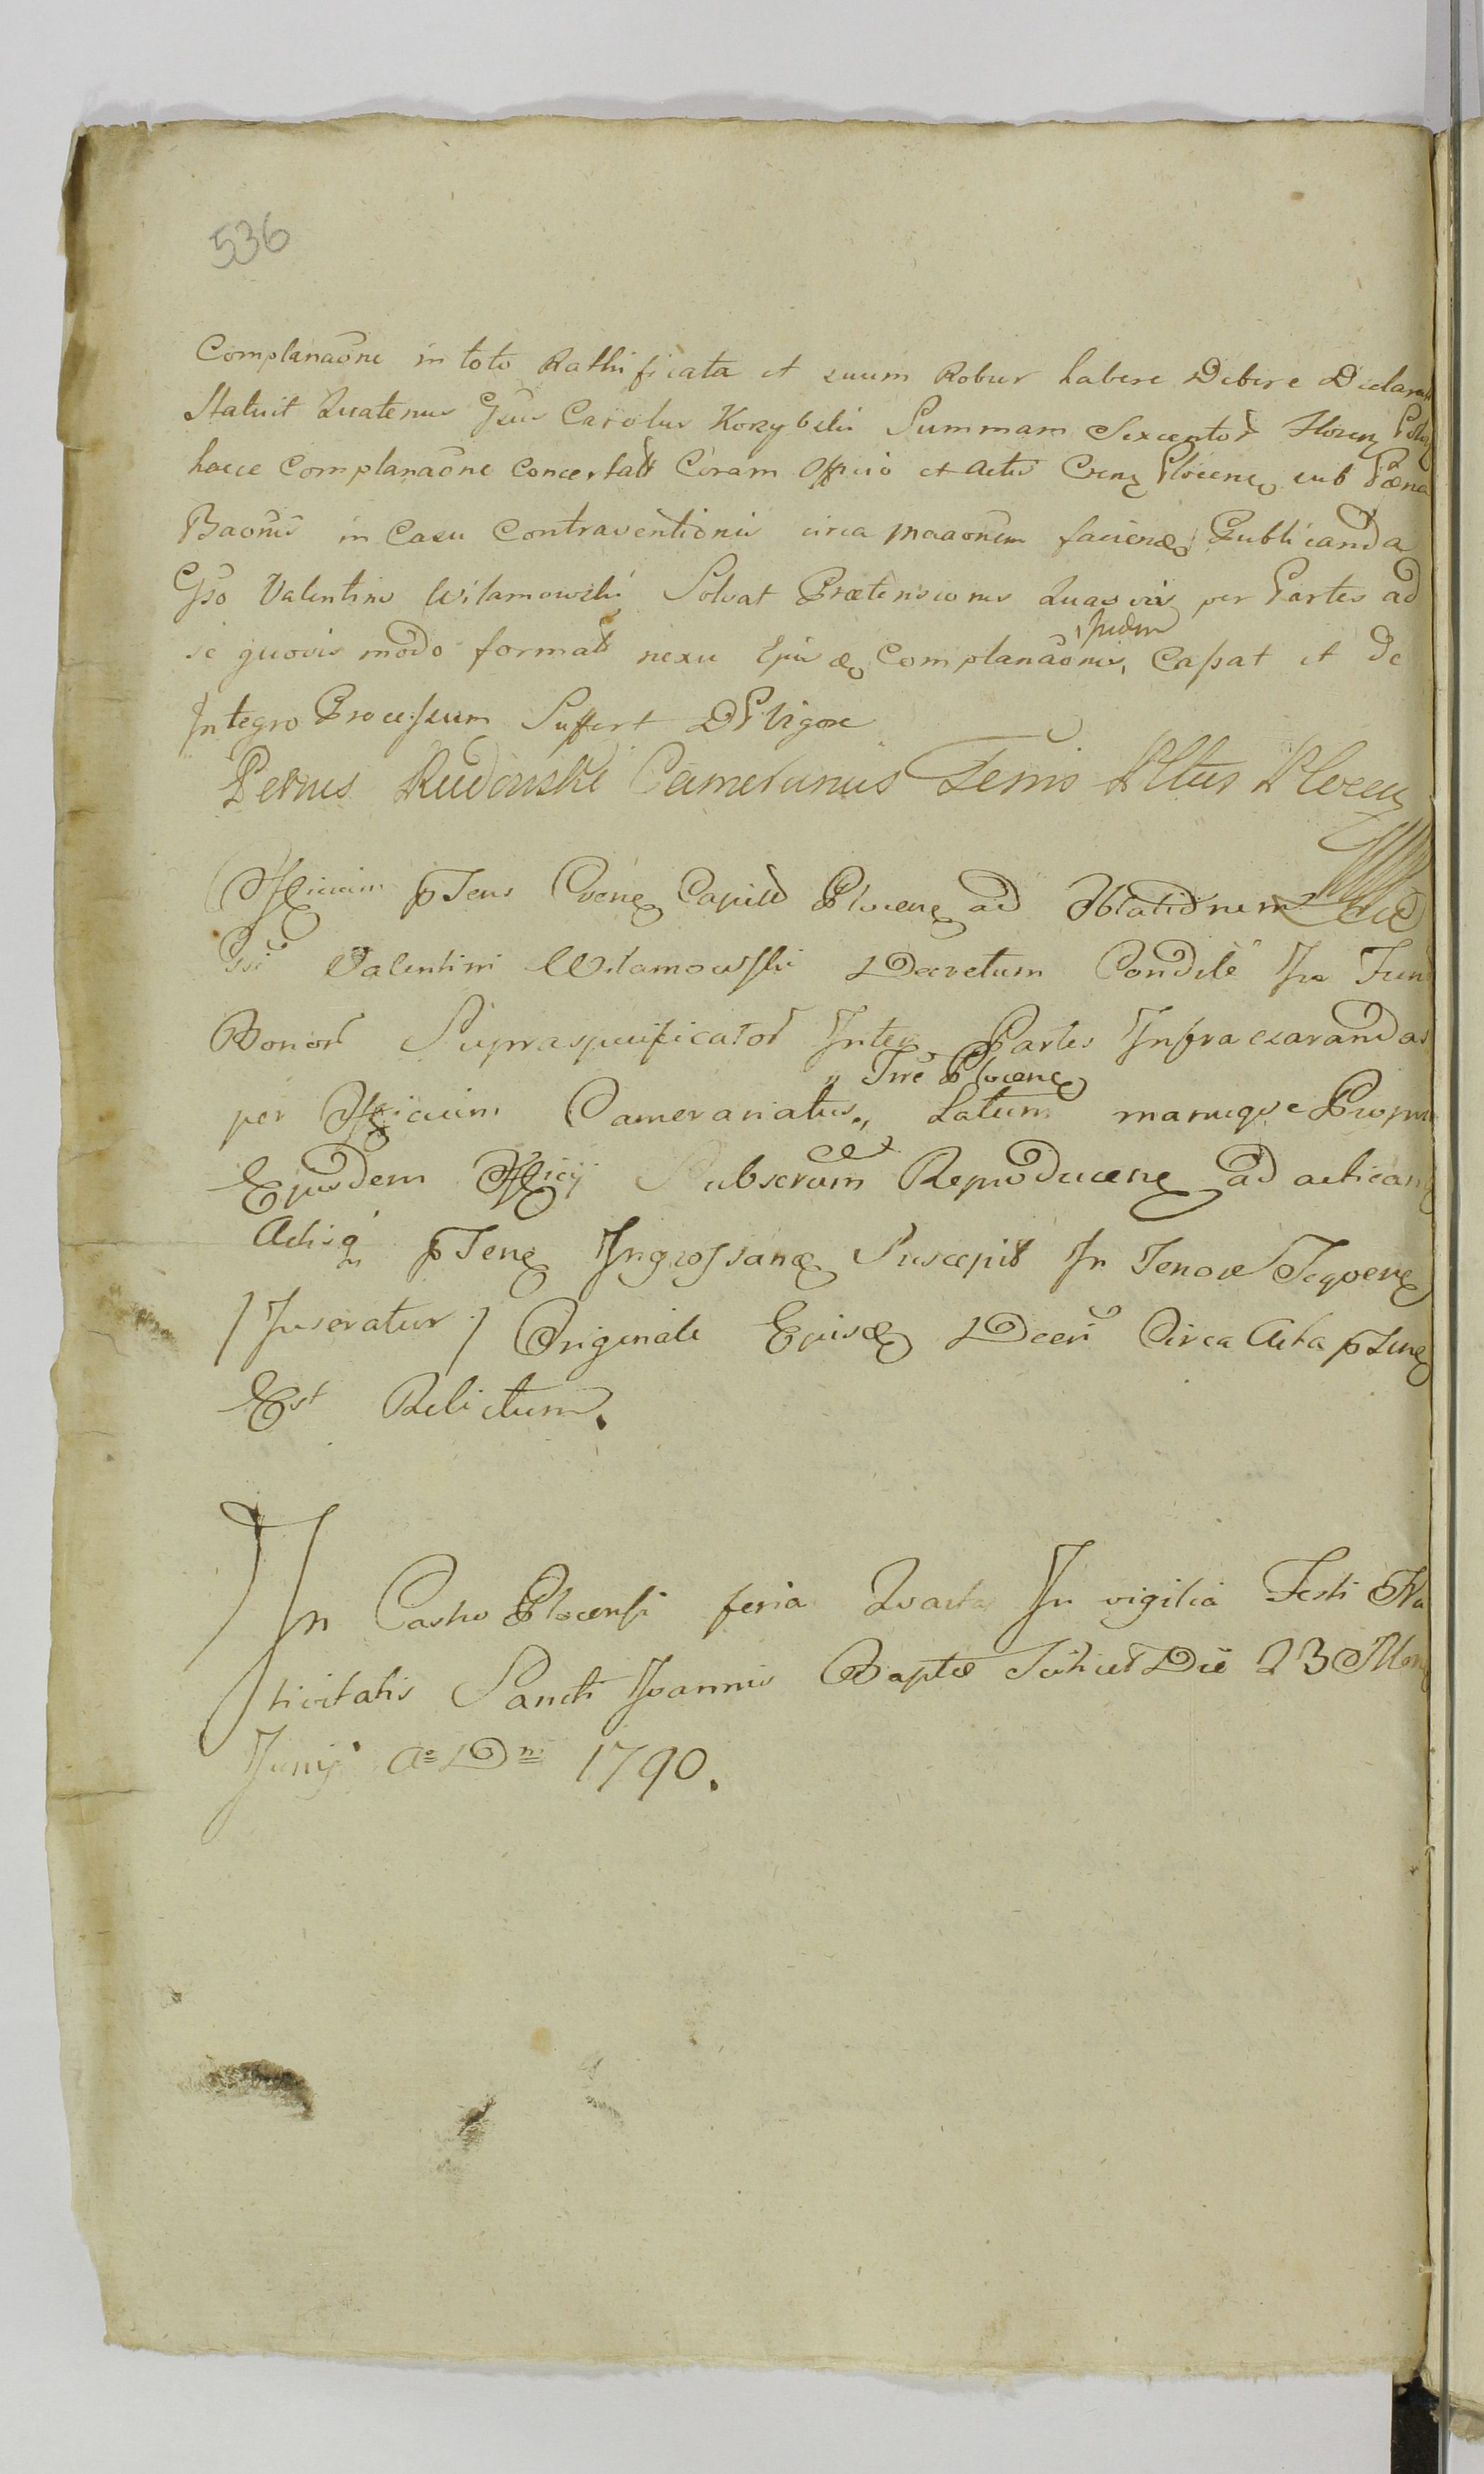 536
Complanaõne in toto Rathificata et suum Robur habere Debere Declarat
Statuit Quatenus Gsus Carolus Korzybski Summam Sexcentor Floren Polon
hacce Complanaõne Concertatt Coram Officio et Actis Cren Plocen sub Pœna
Baõnis in Casu Contraventionis circa maaõnem facien Publicanda
Gso Valentino Wilamowski Solvat Prætensiones Quasvis per Partes ad
se quovis modo formatt nexu Ejusd Complanaõnis, Cassat et de
Integro Processum Suffert D P Vigore
Petrus Rudowski Camerarius Terris Pltus Plocen
Officium pñs Crene Capitle Plocen ad Oblationem
Gsi Valentini Wilamowski Decretum Conditle In Fun
Bonor Supraspecificator Inter Partes Infra exarandas
„ Trre Plocen
per Officium Camerariatus „ Latum manuque Propria
Ejusdem Officij Subscrum et Reproducen ad acticand
Actisq pñ Ingrossan Suscepit In Tenore Sequen
/ Inseratur / Originale Ejusd Decri Circa Acta pñ
Est Relictum.
In Castro Plocensi feria Quarta In vigilia Festi Na
tivitatis Sancti Joannis Baptæ Scilicet Die 23 Men
Junij Ao Dni 1790.